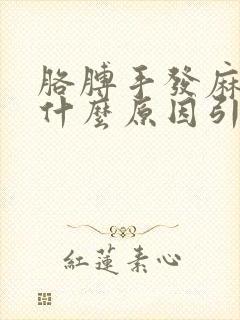 胳膊手發麻
什麼原因引
紅蓮素心